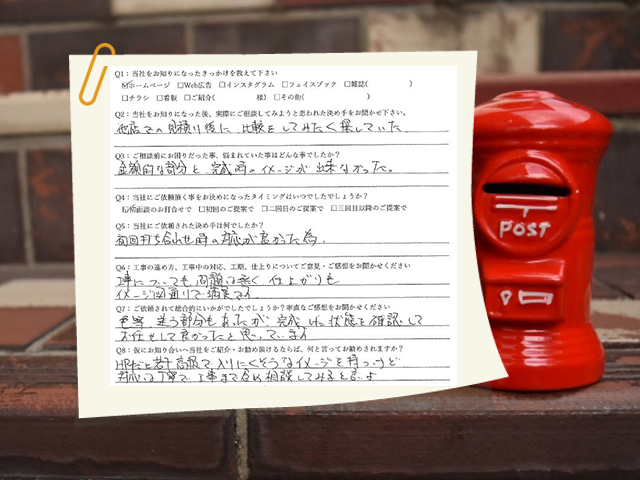 Q1：当社をお知りになったきっかけを教えて下さい
☑ホームページ □Web広告 □インスタグラム □フェイスブック □雑誌( )
□チラシ □看板 □ご紹介( 様) □その他( )
Q2：当社をお知りになった後、実際にご相談してみようと思われた決め手をお聞かせ下さい。
他店での見積り後に、比較をしてみたく探していた。
Q3：ご相談前にお困りだった事、悩まれていた事はどんな事でしたか？
金額的な部分と、完成時のイメージが出来なかった。
Q4：当社にご依頼頂く事をお決めになったタイミングはいつでしたでしょうか？
☑初面談のお打合せで □初回のご提案で □二回目のご提案で □三回目以降のご提案で
Q5：当社にご依頼された決め手は何でしたか？
初回打ち合わせ時の対応が良かった為。
Q6：工事の進め方、工事中の対応、工期、仕上りについてご意見・ご感想をお聞かせください
工事についても問題は無く、仕上がりも
イメージ図通りで満足です。
Q7：ご依頼されて総合的にいかがでしたでしょうか？率直なご感想をお聞かせください
色等、迷う部分もあったが、完成した状態を確認して
お任せして良かったと思っています
Q8：仮にお知り合いへ当社をご紹介・お勧め頂けるならば、何と言ってお勧めされますか？
HPだと若干高級で入りにくそうなイメージを持つけど
対応は丁寧で、工事まで含め相談してみると良いよ
POST